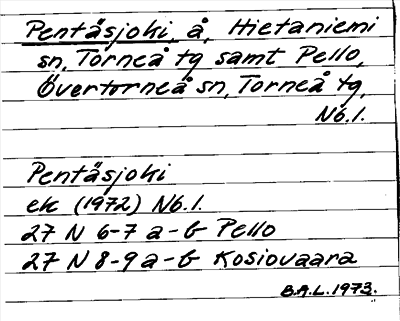 Pentäsjoki, å, Hietaniemi
sn, Torneå tg samt Pello,
Övertorneå sn, Torneå tg,
Nb.l.
Pentäsjoki
ek (1972) Nb.l.
27 N 6-7 a-b Pello
27 N 8-9 a-b Kosiovaara
B.A.L. 1973.